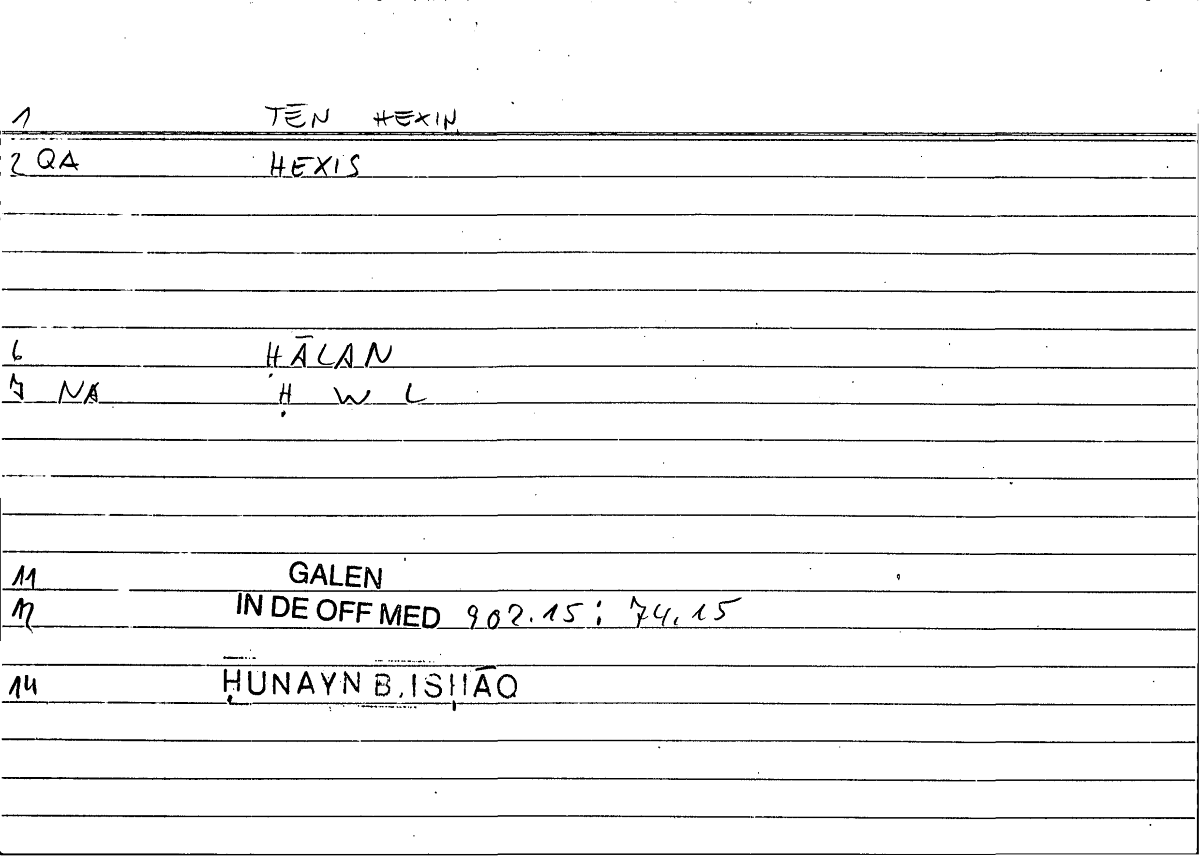 1 TĒN HEXIN
2 QA HEXIS
6 ḤĀLAN
7 NA Ḥ W L
11 GALEN
12 IN DE OFF MED 902.15 : 74.15
14 ḤUNAYN B. ISḤĀQ